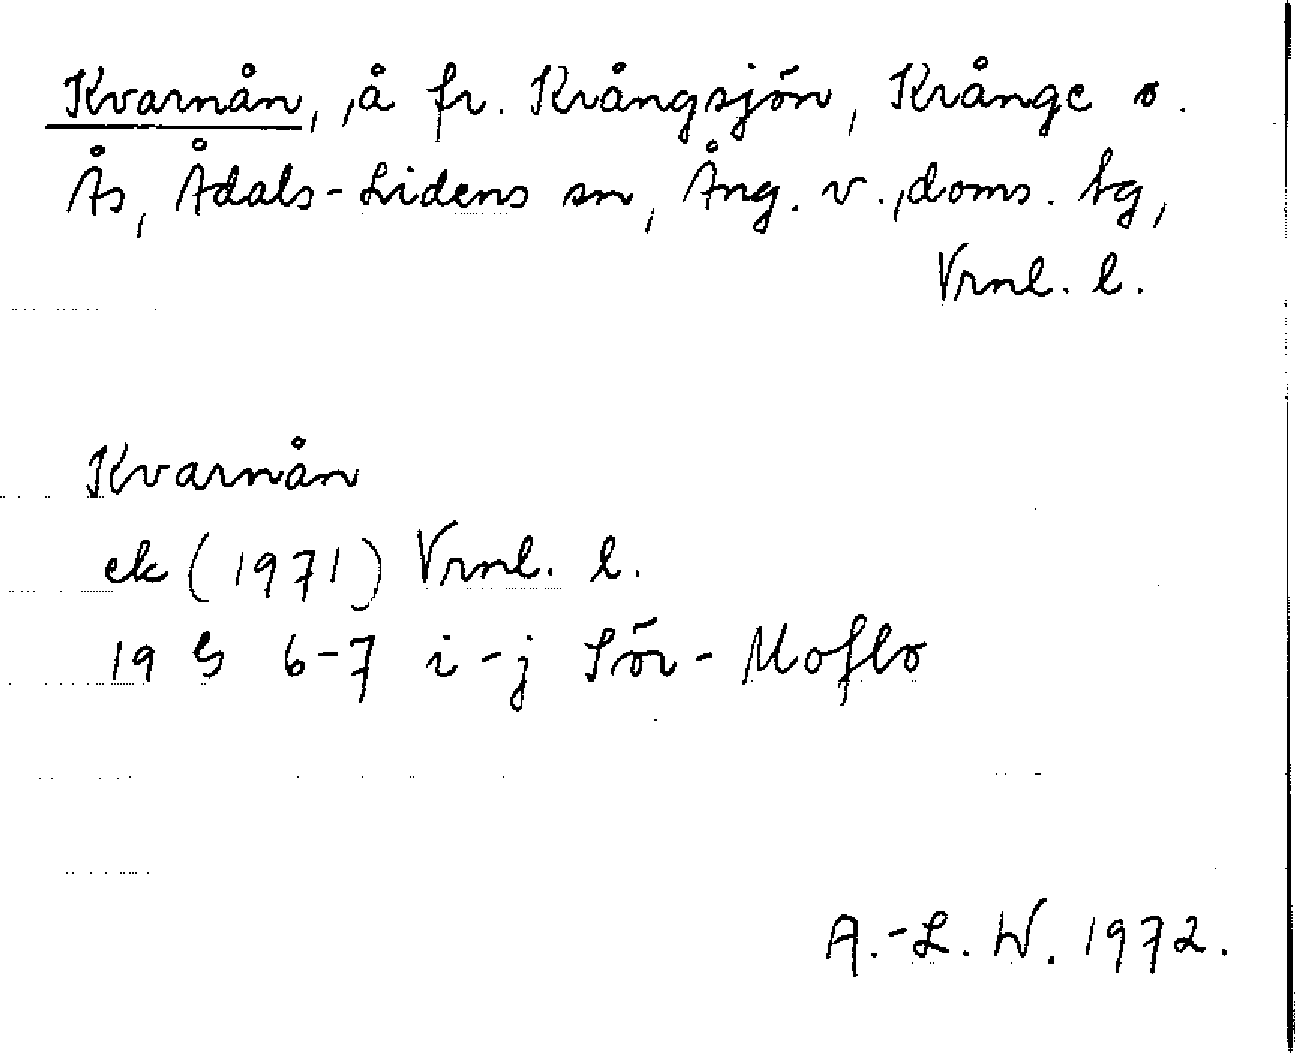 Kvarnån, å fr. Krångsjön, Krånge o.
Ås, Ådals-Lidens sn, Ång. v., doms. tg,
Vrnl. l.
Kvarnån
ek (1971) Vrnl. l.
19 G 6-7 i-j Sör-Moflo
A.-L. W. 1972.